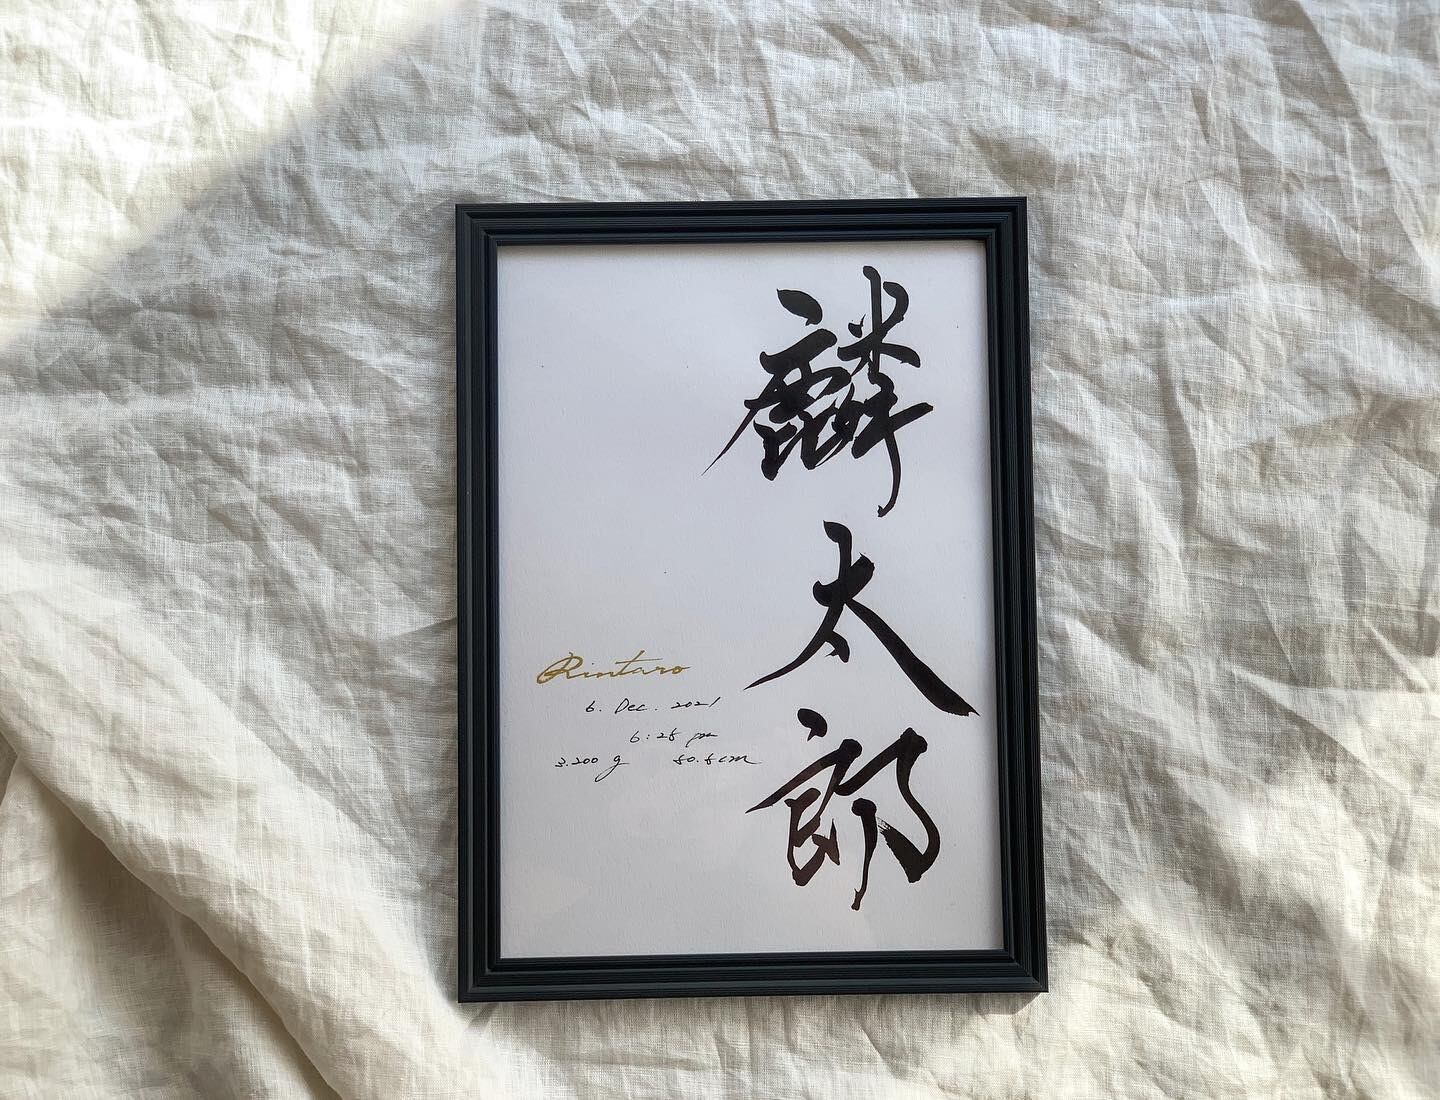 麟太郎
Rintaro
6. Dec. 2021
6:28 pm
3.200 g 50.5cm